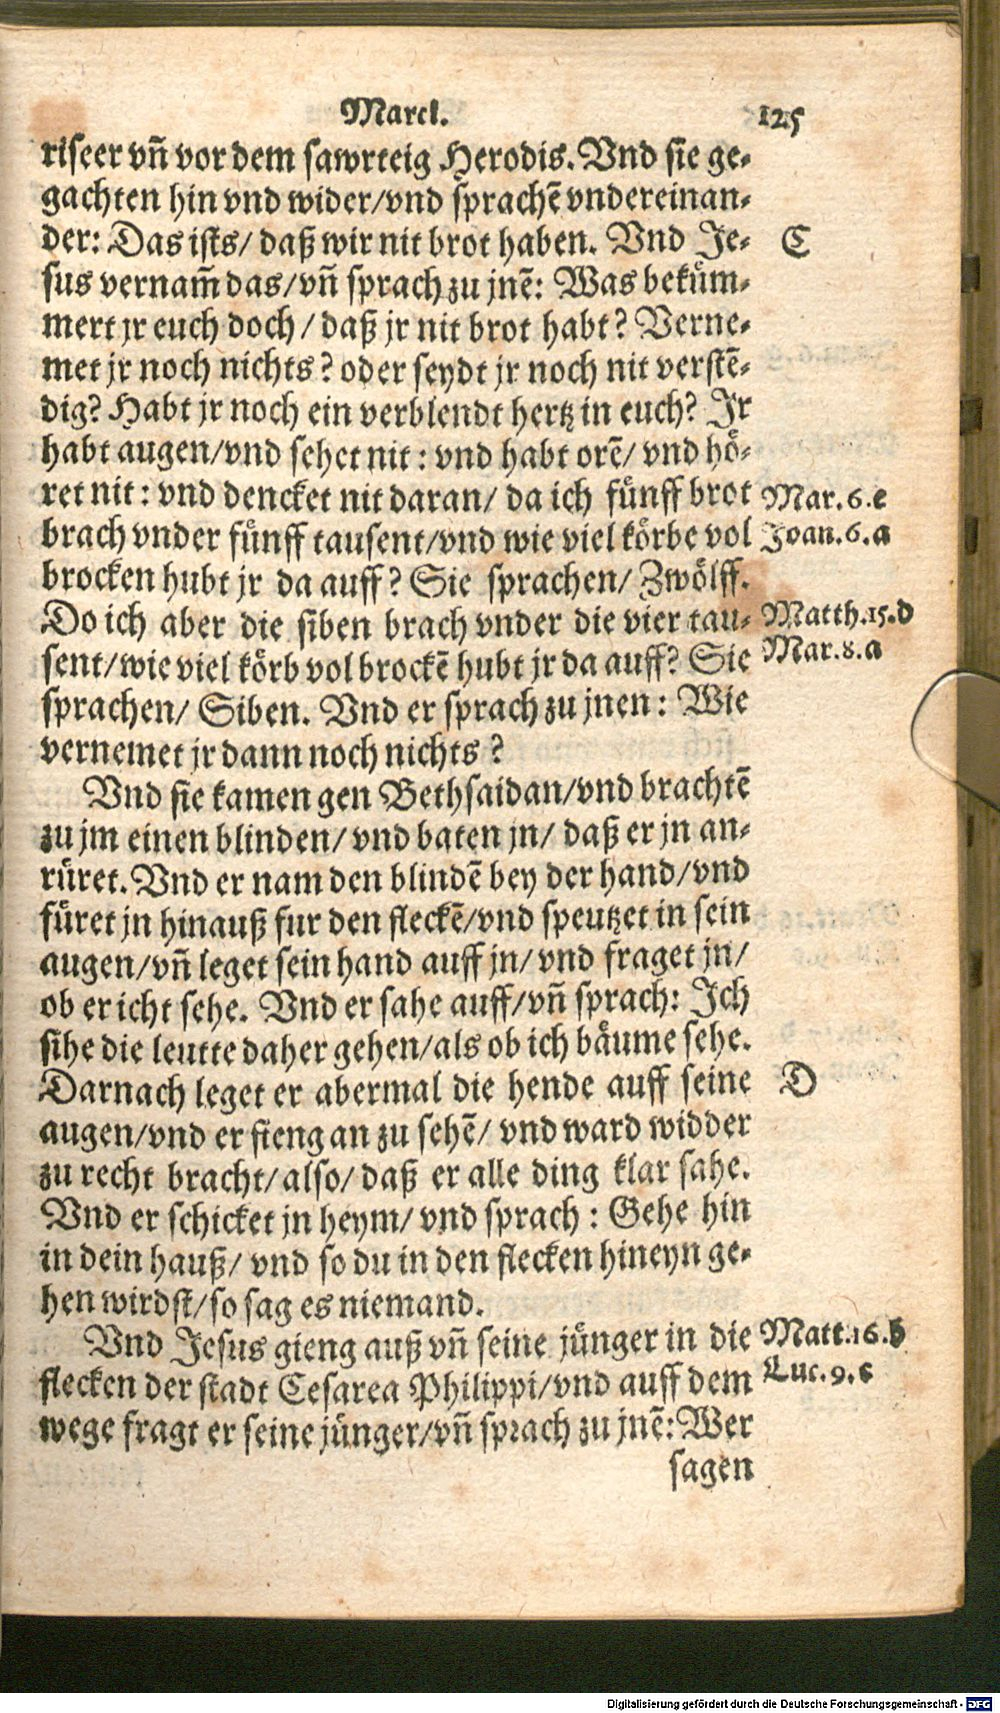 Marci.
125
riseer vn̄ vor dem sawrteig Herodis. Vnd sie ge-
gachten hin vnd wider/vnd sprachē vndereinan-
der: Das ists/ daß wir nit brot haben. Vnd Je-
C
sus vernam̄ das/vn̄ sprach zu jnē: Was beküm-
mert jr euch doch/ daß jr nit brot habt? Verne-
met jr noch nichts? oder seydt jr noch nit verstē-
dig? Habt jr noch ein verblendt hertz in euch? Ir
habt augen/vnd sehet nit: vnd habt orē/ vnd hö-
ret nit: vnd dencket nit daran/ da ich fünff brot
Mar.6.e
brach vnder fünff tausent/vnd wie viel körbe vol
Joan.6.a
brocken hubt jr da auff? Sie sprachen/ Zwölff.
Do ich aber die siben brach vnder die vier tau-
Matth.15.d
sent/wie viel körb vol brockē hubt jr da auff? Sie
Mar.8.a
sprachen/ Siben. Vnd er sprach zu jnen: Wie
vernemet jr dann noch nichts?
Vnd sie kamen gen Bethsaidan/vnd brachtē
zu jm einen blinden/ vnd baten jn/ daß er jn an-
rüret. Vnd er nam den blindē bey der hand/vnd
füret jn hinauß fur den fleckē/vnd speutzet in sein
augen/vn̄ leget sein hand auff jn/ vnd fraget jn/
ob er icht sehe. Vnd er sahe auff/vn̄ sprach: Ich
sihe die leutte daher gehen/als ob ich bäume sehe.
Darnach leget er abermal die hende auff seine
D
augen/vnd er fieng an zu sehē/ vnd ward widder
zu recht bracht/also/ daß er alle ding klar sahe.
Vnd er schicket jn heym/ vnd sprach: Gehe hin
in dein hauß/ vnd so du in den flecken hineyn ge-
hen wirdst/so sag es niemand.
Vnd Jesus gieng auß vn̄ seine jünger in die
Matt.16.b
flecken der stadt Cesarea Philippi/vnd auff dem
Luc.9.c
wege fragt er seine jünger/vn̄ sprach zu jnē: Wer
sagen
Digitalisierung gefördert durch die Deutsche Forschungsgemeinschaft - DFG